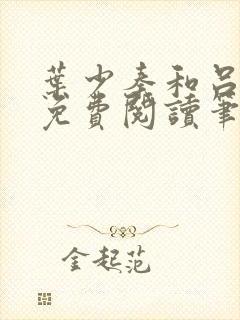 葉少秦和呂
免費閱讀筆
金起范